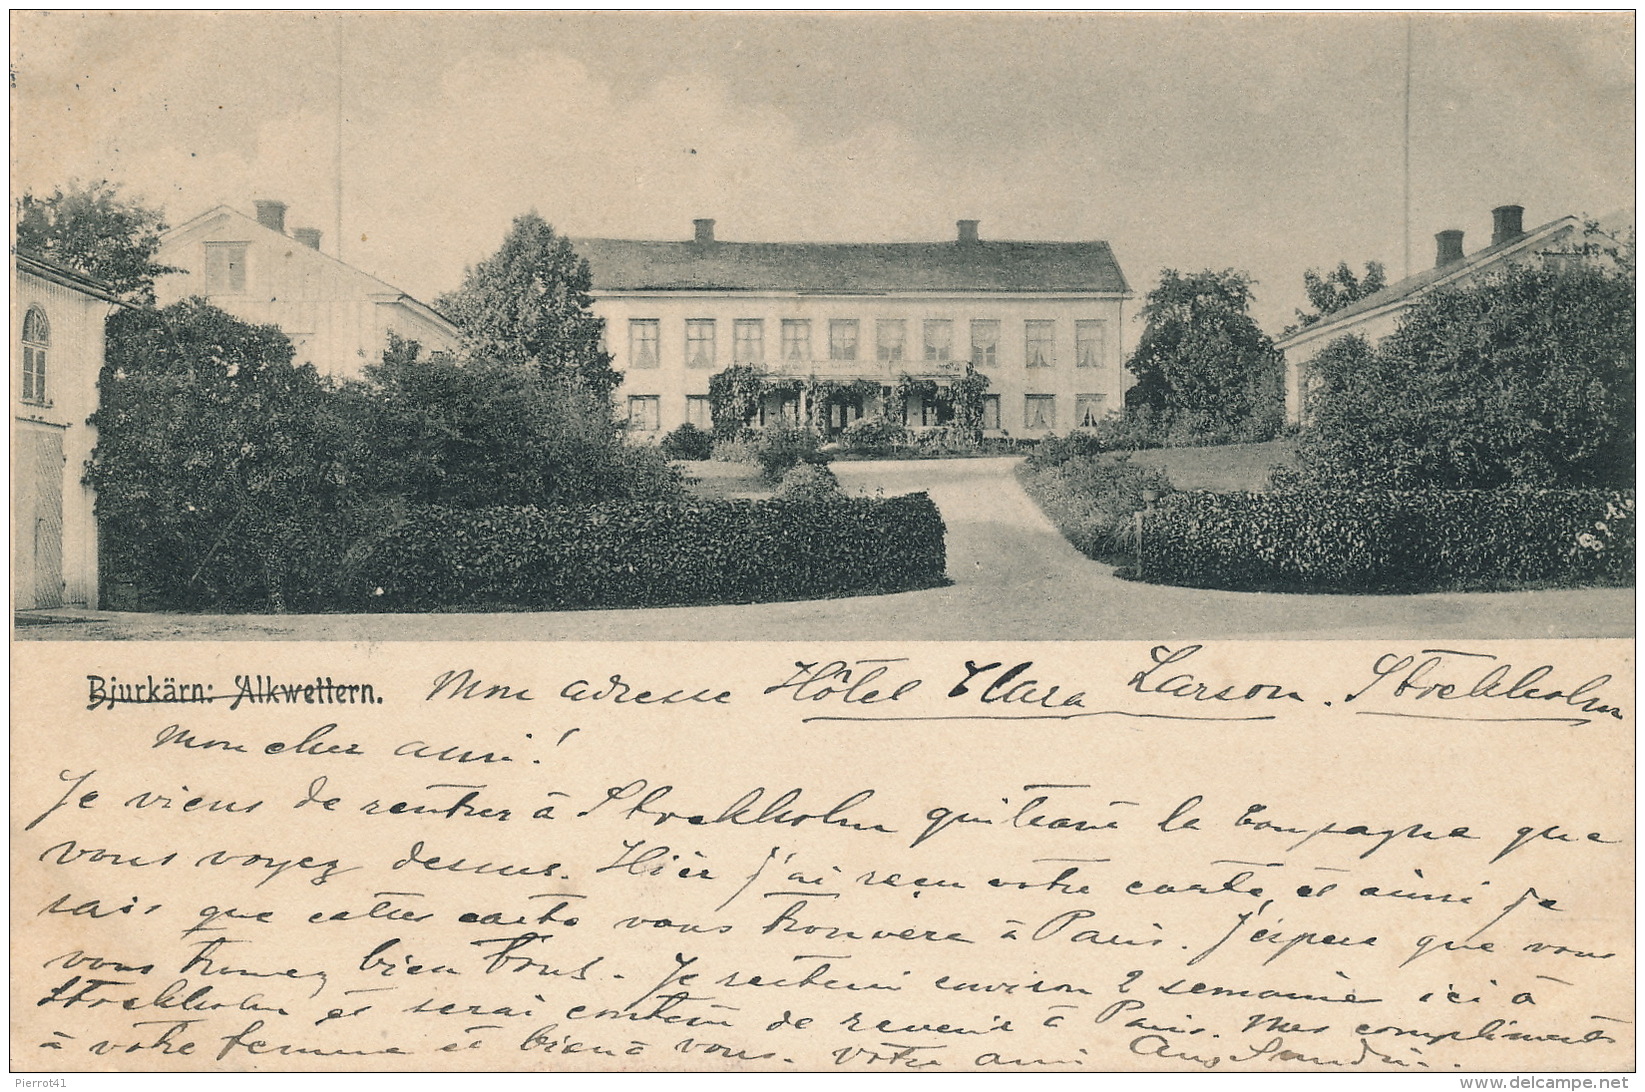 Bjurkärn: Alkwettern. Mon adresse Hôtel Clara Larson. Stockholm
Mon cher ami!
Je viens de rentrer à Stockholm quittant la Campagne que
vous voyez dessus. Hier j'ai reçu votre carte, et ainsi je
sais que cette carte vous trouvera à Paris. J'espere que vous
vous trouvez bien tous. Je resterai environ 2 semaine ici à
Stockholm et serai content de revenir à Paris. Mes compliments
à votre femme et bien à vous. votre ami Aug
Pierrot41
www.delcampe.net